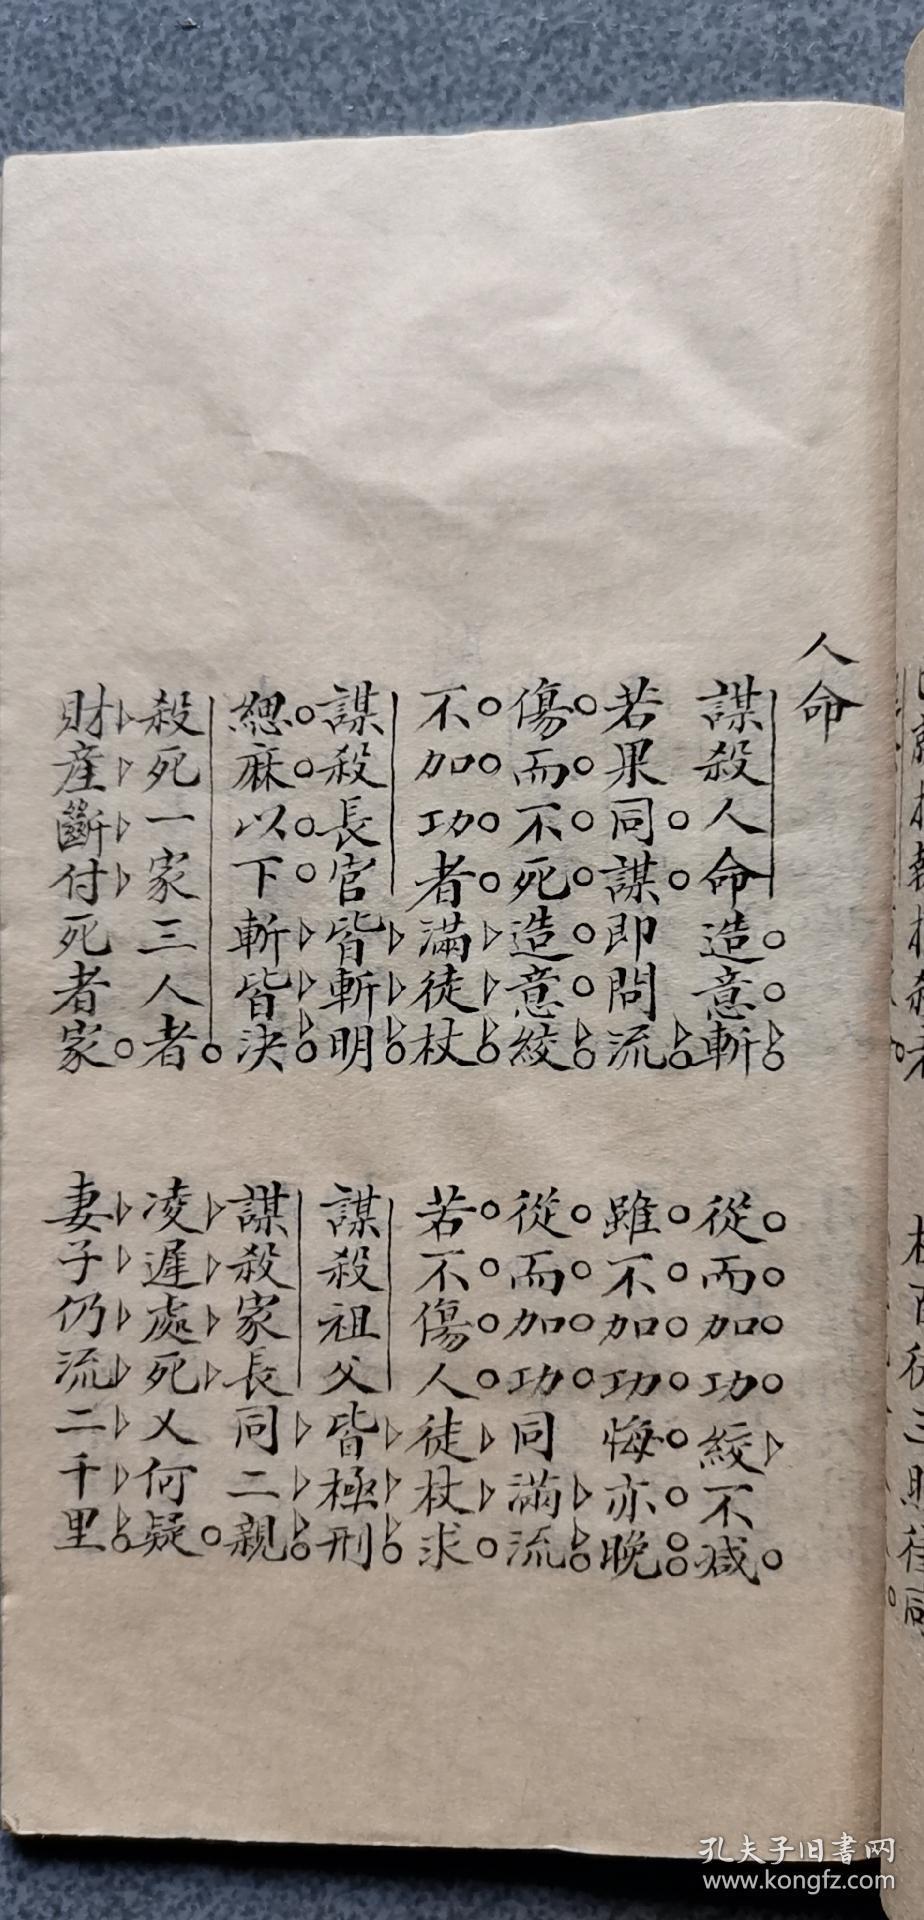 人命
謀殺人命造意斬 從而加功絞不減
若果同謀即問流 雖不加功悔亦晚
傷而不死造意絞 從而加功同滿流
不加功者滿徒杖 若不傷人徒杖求
謀殺長官皆斬明 謀殺祖父皆極刑
緦麻以下斬皆決 謀殺家長同二親
殺死一家三人者 凌遲處死乂何疑
財產斷付死者家 妻子仍流二千里
孔夫子旧書网
www.kongfz.com